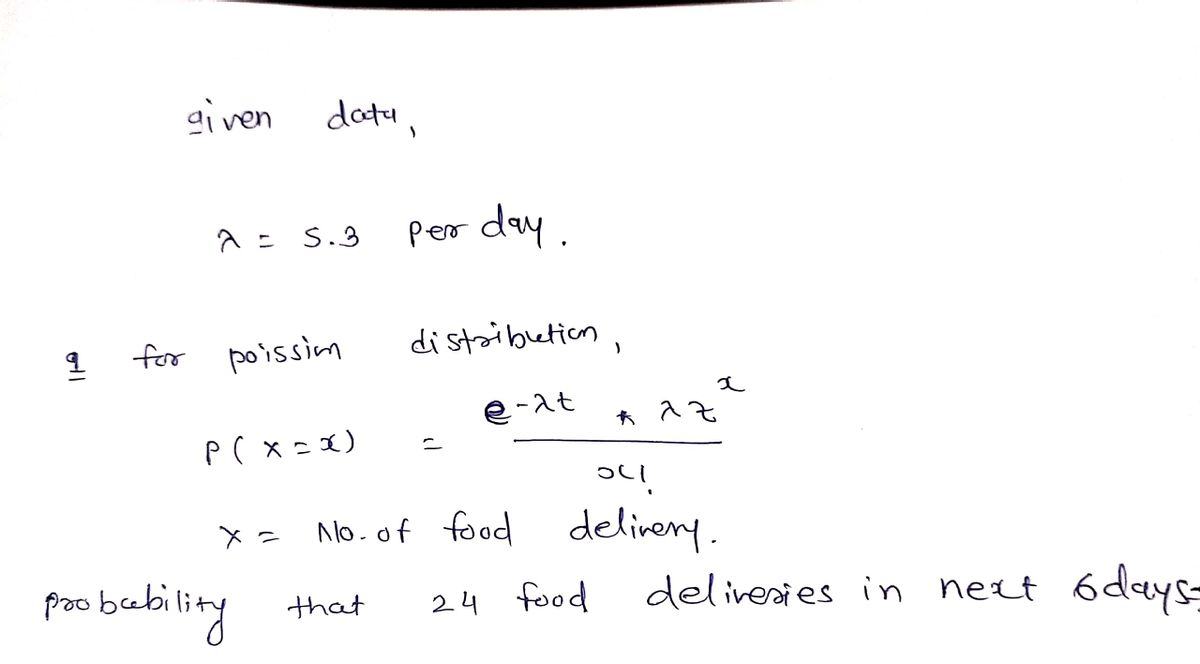 given data,
λ = 5.3 per day.
q for poissim distribution,
P(X=x) = e-λt * λt^x / x!
X = No. of food delivery.
probability that 24 food deliveries in next 6days=